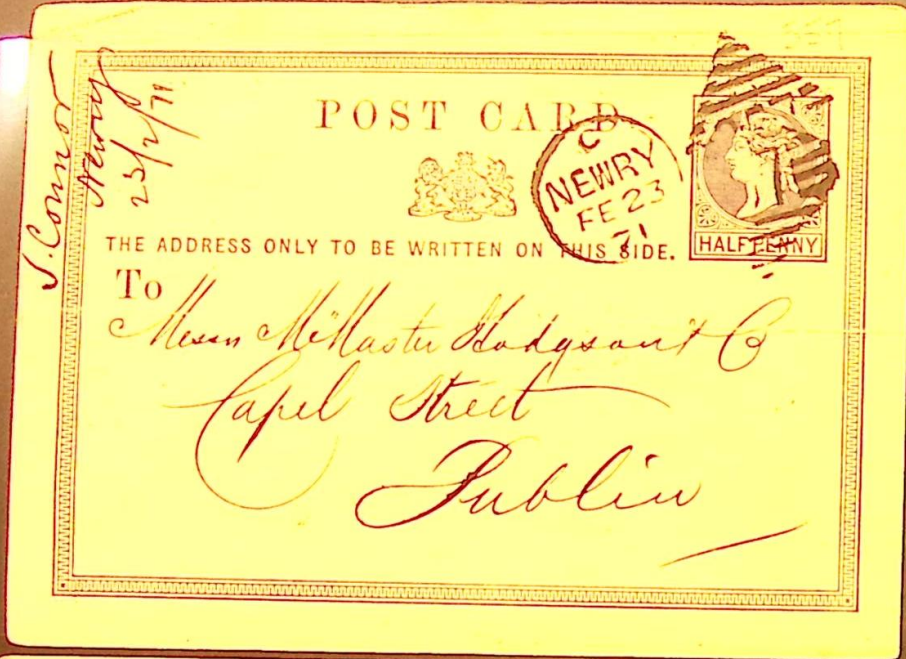 J. Connor
Newry
23/2/71
POST CARD
C
NEWRY
FE 23
71
THE ADDRESS ONLY TO BE WRITTEN ON THIS SIDE.
HALFPENNY
To
Messrs McMaster Hodgson & Co
Capel Street
Dublin